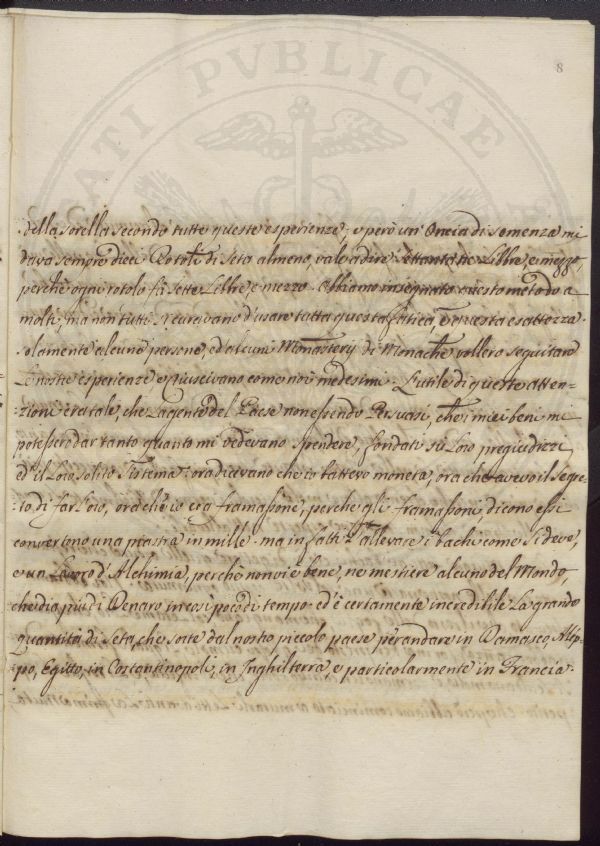 8
PVBLICAE
della sorella secondo tutte queste esperienze, e però un' Oncia di semenza mi
dava sempre dieci Rotoli di Seta almeno, vale a dire Settanta Libbre e mezzo,
perche ogni rotolo fà sette Libbre e mezzo. Abbiamo insegnato questo metodo a
molti, ma non tutti si curavano d'usare tutta questa fatica, e questa esattezza.
solamente alcune persone, ed alcuni Monasterij di Monache vollero seguitare
Le nostre esperienze e riuscivano come noi medesimi. L'utile di queste atten-
-zioni era tale, che La gente del Paese non essendo Persuasi, che i miei beni mi
potessero dar tanto quanto mi vedevano spendere, fondati sù i Loro pregiudizzi
ed il Loro solito Sistema, ora dicevano che io battevo moneta, ora che avevo il segre-
-to di far L'oro, ora che io era framassone, perche gli framassoni, dicono essi
convertono una piastra in mille. ma in fatti L'allevare i bachi come si deve,
e un Lavoro d'Alchimia, perche non vi è bene, ne mestiere alcuno del Mondo,
che dia più di Denaro in così poco di tempo. ed è certamente incredibile La grande
quantità di Seta, che sorte dal nostro piccolo paese per andare in Damasco, Alep-
-po, Egitto, in Costantinopoli, in Inghilterra, e particolarmente in Francia.